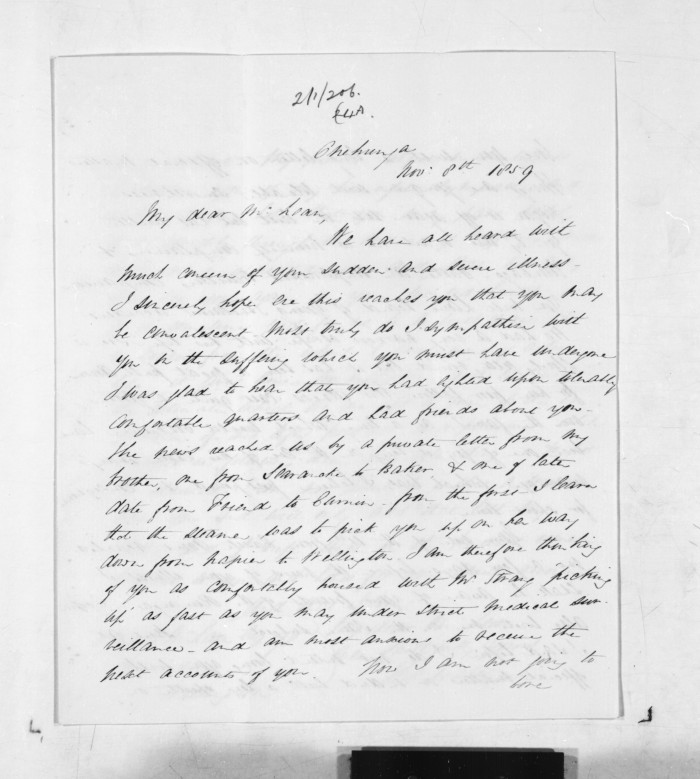 2/1/206.
Onehunga
Nov: 8th 1859
My dear McLean,
We have all heard with
much concern of your sudden and severe illness -
I sincerely hope ere this reaches you that you may
be convalescent. Most truly do I sympathise with
you in the suffering which you must have undergone
I was glad to hear that you had lighted upon tolerably
comfortable quarters and had friends about you -
The news reached us by a private letter from my
brother, one from to Baker & one of late
date from Friend to Curnin - from the first I learn
that the steamer was to pick you up on her way
down from Napier to Wellington I am therefore thinking
of you as comfortably housed with Mr Strang "picking
up" as fast as you may under strict medical sur-
veillance - and am most anxious to receive the
next accounts of you. Now I am not going to
bore